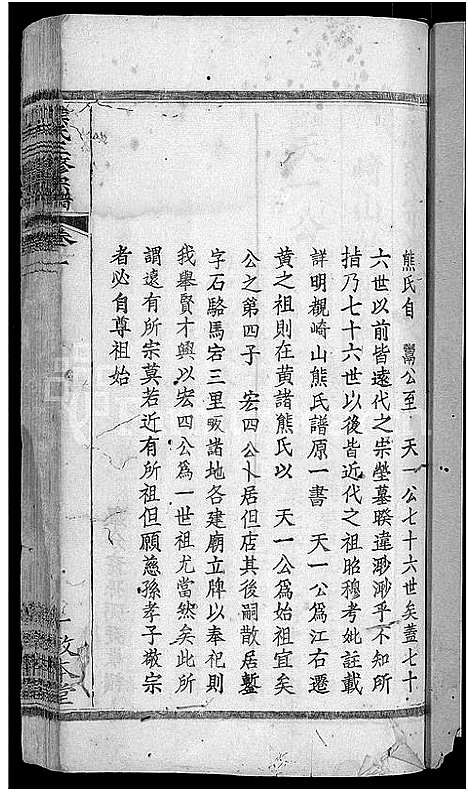 熊氏自　鬻公至　天一公七十六世矣蓋七十
六世以前皆遠代之崇塋墓暌違渺渺乎不知所
指乃七十六世以後皆近代之祖昭穆考妣註載
詳明觀崎山熊氏譜原一書　天一公爲江右遷
黄之祖則在黄諸熊氏以　天一公爲始祖宜矣
公之第四子　宏四公卜居但店其後嗣散居鏨
字石駱馬宕三里畈諸地各建廟立牌以奉祀則
我舉賢才興以宏四公爲一世祖尤當然矣此所
謂遠有所宗莫若近有所祖但願慈孫孝子敬宗
者必自尊祖始
熊氏三修宗譜
卷一
敦本堂